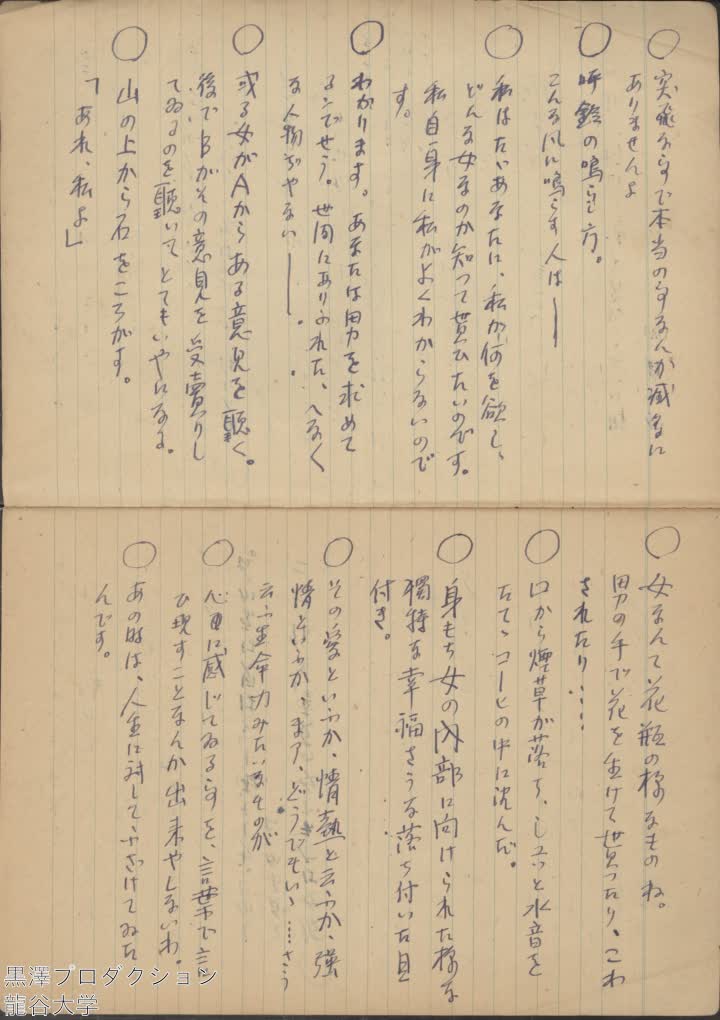 ○ 突飛な事で本当の事なんか滅多に
ありませんよ
○ 呼鈴の鳴らし方。
こんな風に鳴らす人は――
○ 私はたゞあなたに、私が何を欲し、
どんな女なのか知つて貰ひたいのです。
私自身に私がよくわからないので
す。
○ わかります。あなたは男を求めて
るンでせう。世間にありふれた、へなく
な人物ぢやない――。
○ 或る女がAからある意見を聽く。
後でBがその意見を受賣りし
てゐるのを聽いてとてもいやになる。
○ 山の上から石をころがす。
「あれ、私よ」
○ 女なんて花瓶の様なものね。
男の手で花を生けて貰つたり、こわ
されたり‥‥
○ 口から煙草が落ち、しゆつと水音を
たてゝコーヒの中に沈んだ。
○ 身もち女の内部に向けられた様な
獨特な幸福さうな落ち付いた目
付き。
○ その愛といふか、情熱と云ふか、強
情といふか、まア、どうでもいゝ‥‥さう
云ふ生命力みたいなものが
○ 心臓に感じてゐる事を、言葉で言
ひ現すことなんか出来やしないわ。
○ あの時は、人生に対してふざけてゐた
んです。
黒澤プロダクション
龍谷大学